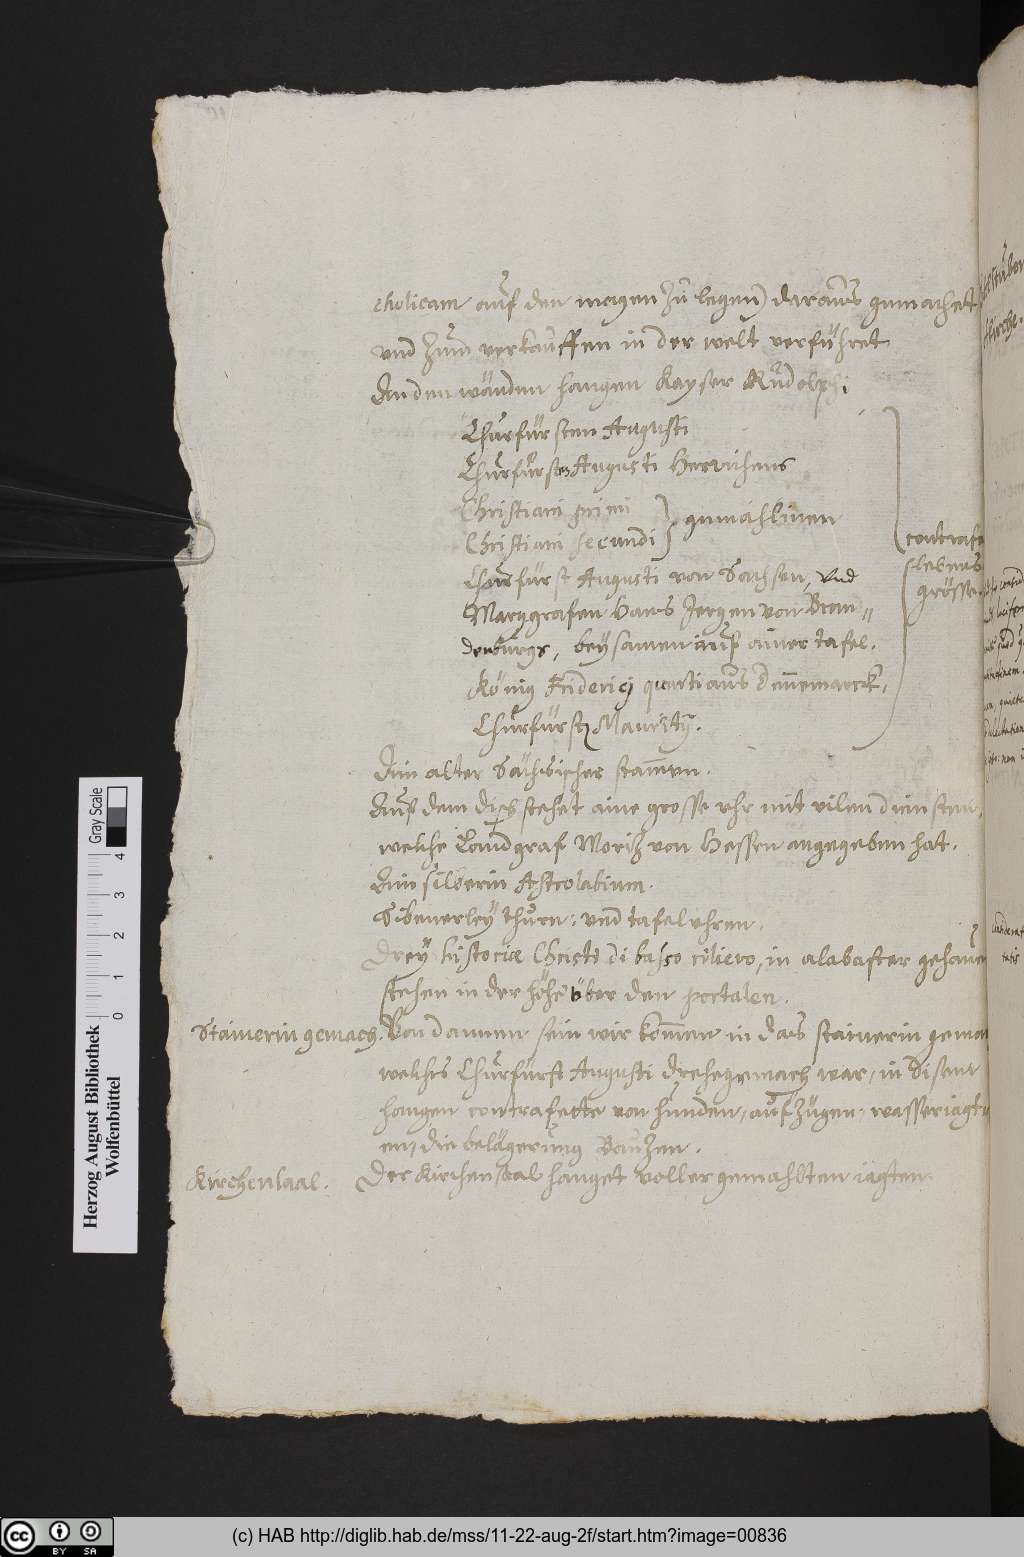 cholicam auf den magen zu legen) daraus gemachett
und zum verkauffen in der welt verführet
An den wänden hangen Kayser Rudolphi.
Churfürsten Augusti
Churfürsten Augusti
Christiani primi
Christiani secundi } gemahlinen
Churfürst Augusti von Sachsen, und
Marggrafen Hans Jergen von Bran„
denburgs, beysamen auf ainer tafel.
König Friderici quarti aus Dennemarck,
Churfürst Mauritij.
contrafe
lebens
grösse
Ain alter Sächsischer stammen.
Auf dem disch stehet aine grosse uhr mit vilen
welche Landgraf Moritz von Hessen angegeben hat.
Ain silberin Astrolabium.
Sibenerley thurn: und tafeluhren.
Drey historiæ Christi di basso rilievo, in alabaster gehauen
stehen in der höhe über den portalen.
Stainerin gemach.
Von dannen sein wir kommen in das stainerin gemach
welches Churfürst Augusti drehegemach war, in disem
hangen contrafette von hunden, aufzügen, wasseriagt
en, die belägerung Bautzen.
Kirchensaal.
Der Kirchensaal hanget voller gemahlten iagten.
Herzog August Bibliothek
Wolfenbüttel
0 1 2 3 4
Gray Scale
cc BY SA
(c) HAB http://diglib.hab.de/mss/11-22-aug-2f/start.htm?image=00836